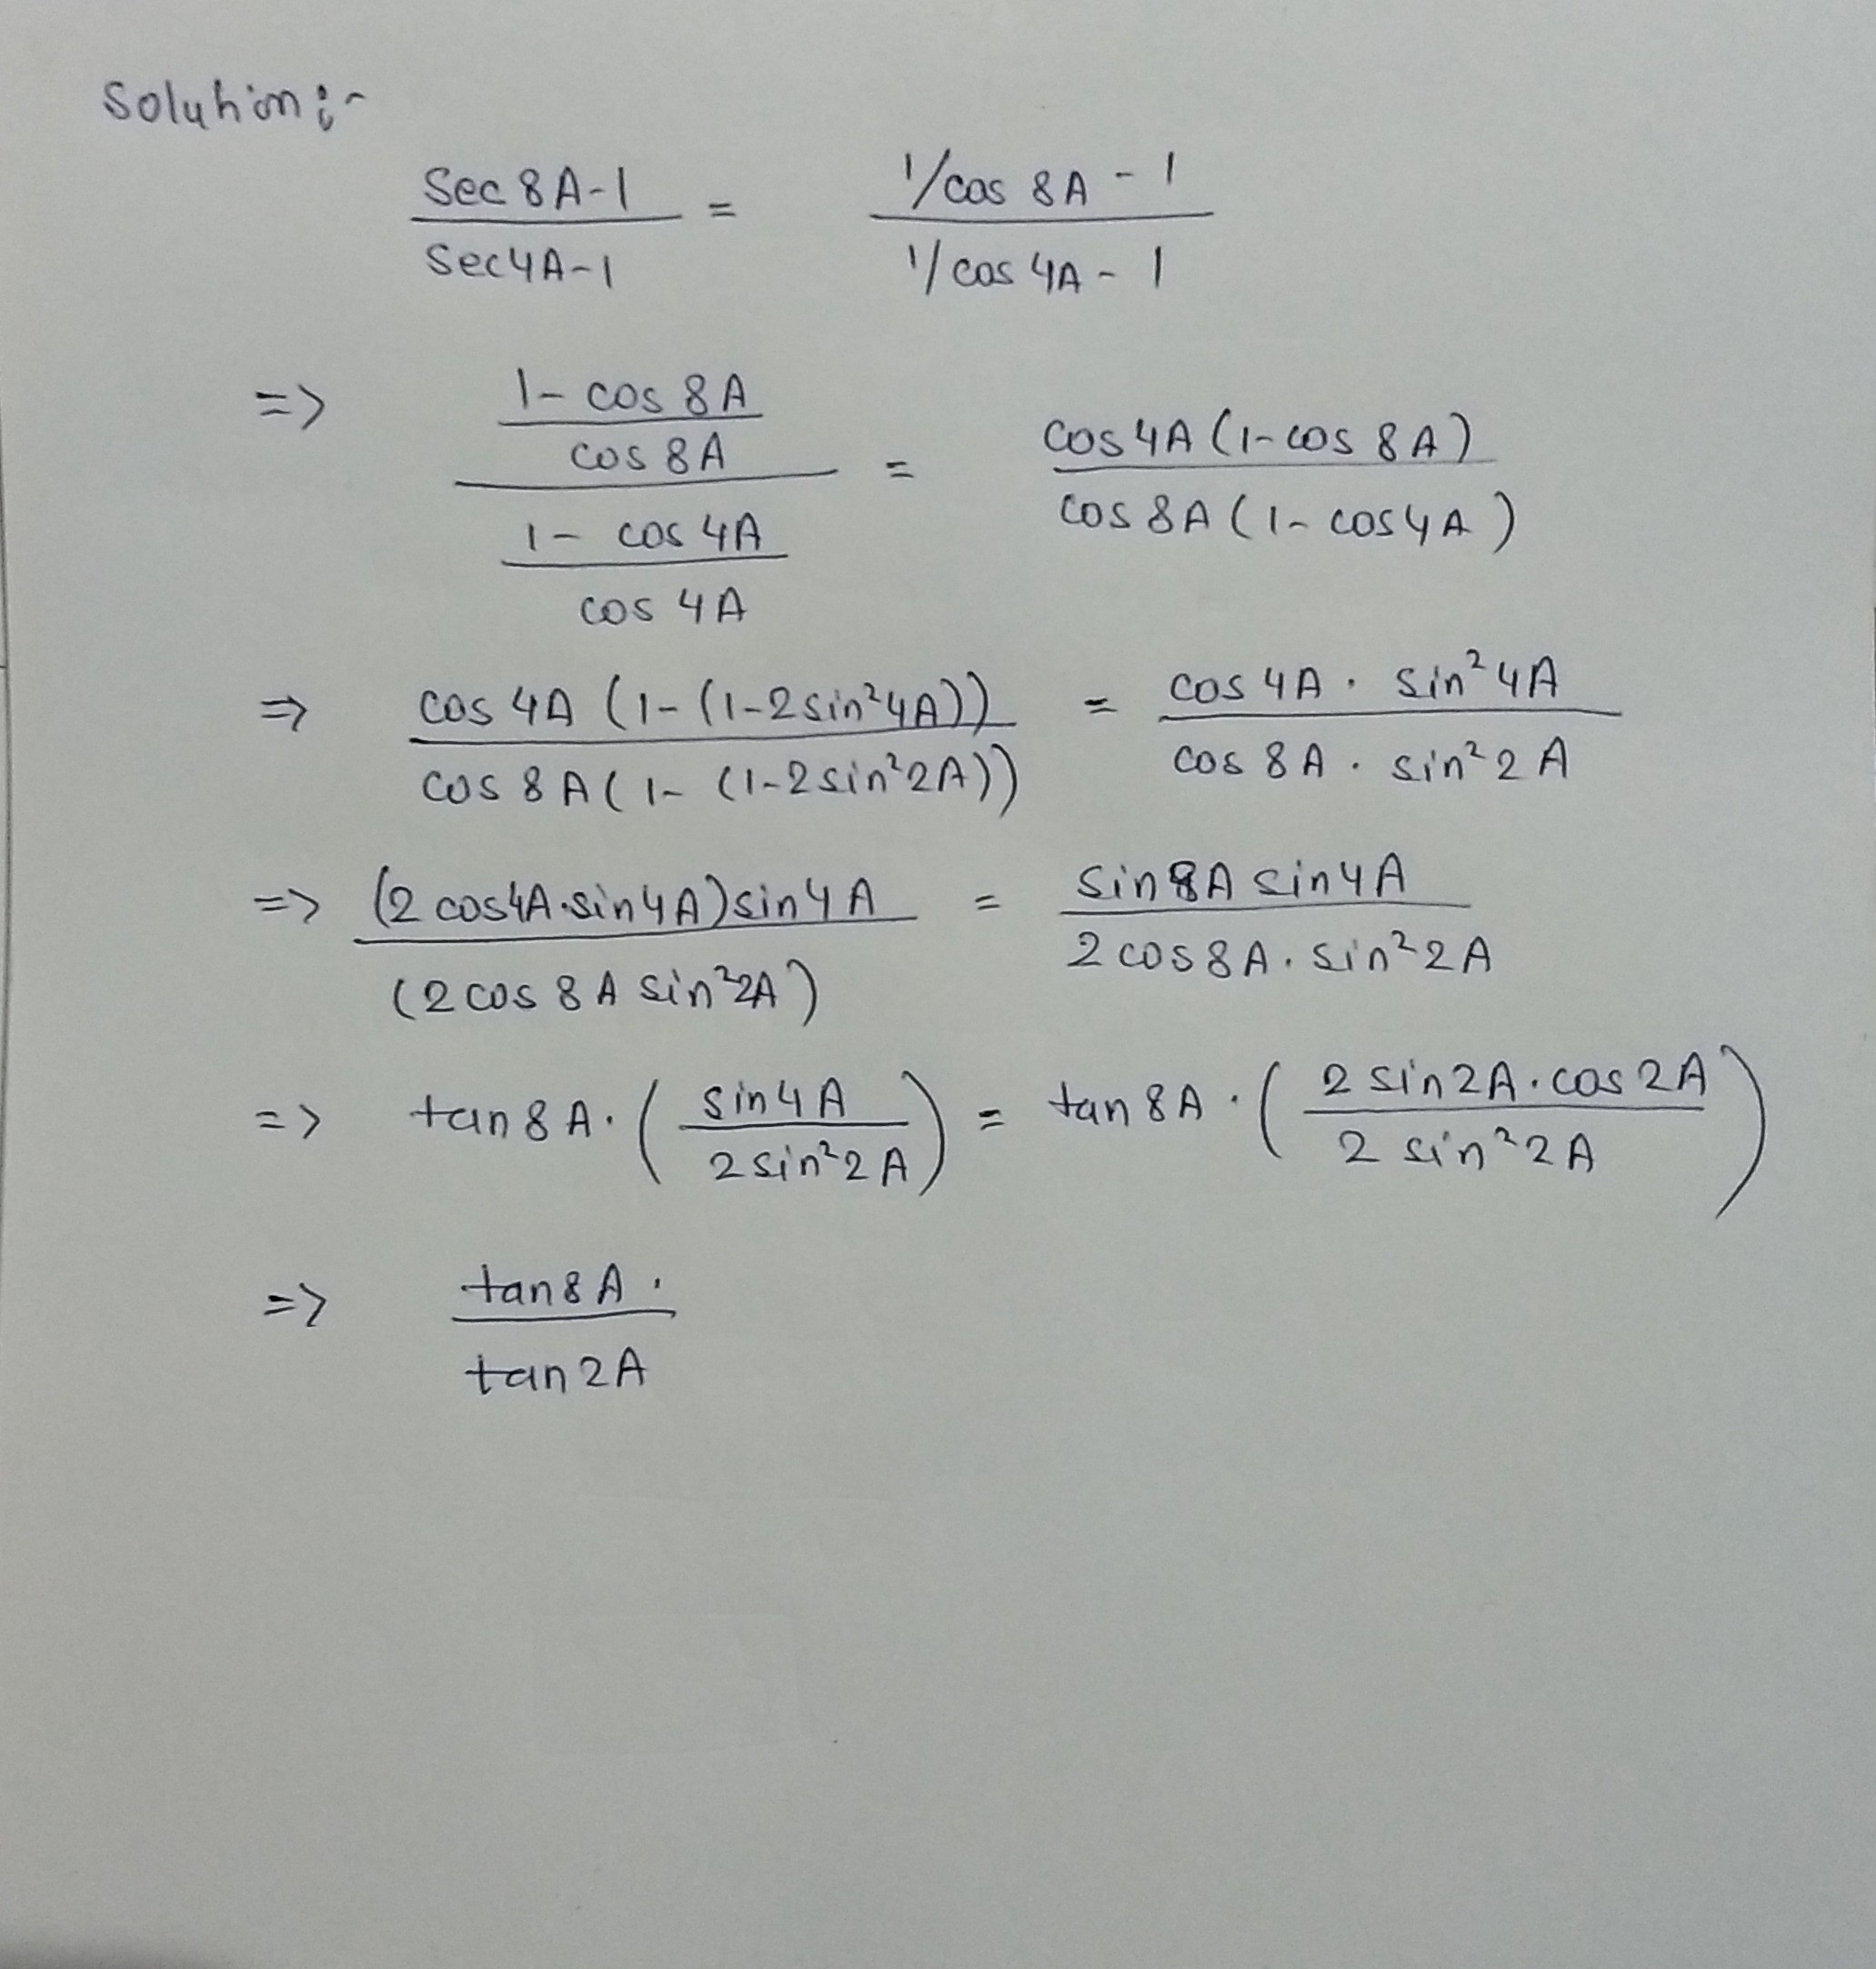 Solution:-
sec 8A-1 / sec4A-1 = 1/cos 8A - 1 / 1/cos 4A - 1
=> 1- cos 8A / cos 8A / 1- cos 4A / cos 4A = cos 4A (1-cos 8A) / cos 8A (1- cos4A)
=> cos 4A (1-(1-2sin²4A)) / cos 8A (1- (1-2sin²2A)) = cos 4A . sin²4A / cos 8A . sin²2A
=> (2 cos4A.sin4A) sin4A / (2 cos 8A sin²2A) = sin8A sin4A / 2 cos8A. sin²2A
=> tan8A. ( sin4A / 2sin²2A ) = tan 8A . ( 2 sin2A.cos2A / 2 sin²2A )
=> tan8A . / tan2A